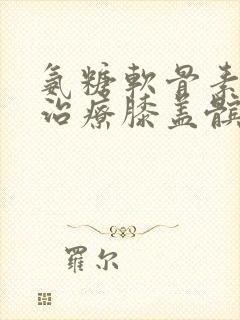 氨糖軟骨素
治療膝盖髌
羅尔